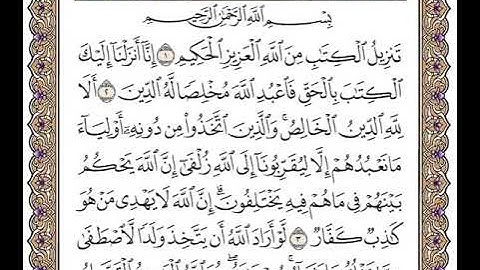 بِسْمِ ٱللَّهِ ٱلرَّحْمَٰنِ ٱلرَّحِيمِ
تَنزِيلُ ٱلْكِتَٰبِ مِنَ ٱللَّهِ ٱلْعَزِيزِ ٱلْحَكِيمِ ١ إِنَّآ أَنزَلْنَآ إِلَيْكَ
ٱلْكِتَٰبَ بِٱلْحَقِّ فَٱعْبُدِ ٱللَّهَ مُخْلِصًا لَّهُ ٱلدِّينَ ٢ أَلَا
لِلَّهِ ٱلدِّينُ ٱلْخَالِصُ ۚ وَٱلَّذِينَ ٱتَّخَذُوا۟ مِن دُونِهِۦٓ أَوْلِيَآءَ
مَا نَعْبُدُهُمْ إِلَّا لِيُقَرِّبُونَآ إِلَى ٱللَّهِ زُلْفَىٰٓ إِنَّ ٱللَّهَ يَحْكُمُ
بَيْنَهُمْ فِى مَا هُمْ فِيهِ يَخْتَلِفُونَ ۗ إِنَّ ٱللَّهَ لَا يَهْدِى مَنْ هُوَ
كَٰذِبٌ كَفَّارٌ ٣ لَّوْ أَرَادَ ٱللَّهُ أَن يَتَّخِذَ وَلَدًا لَّٱصْطَفَىٰ